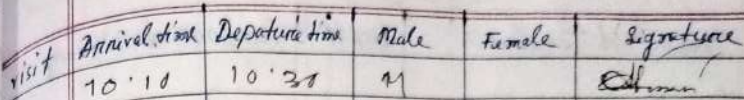 visit Arrival time Depature time Male Female Signature
10.10 10.30 M